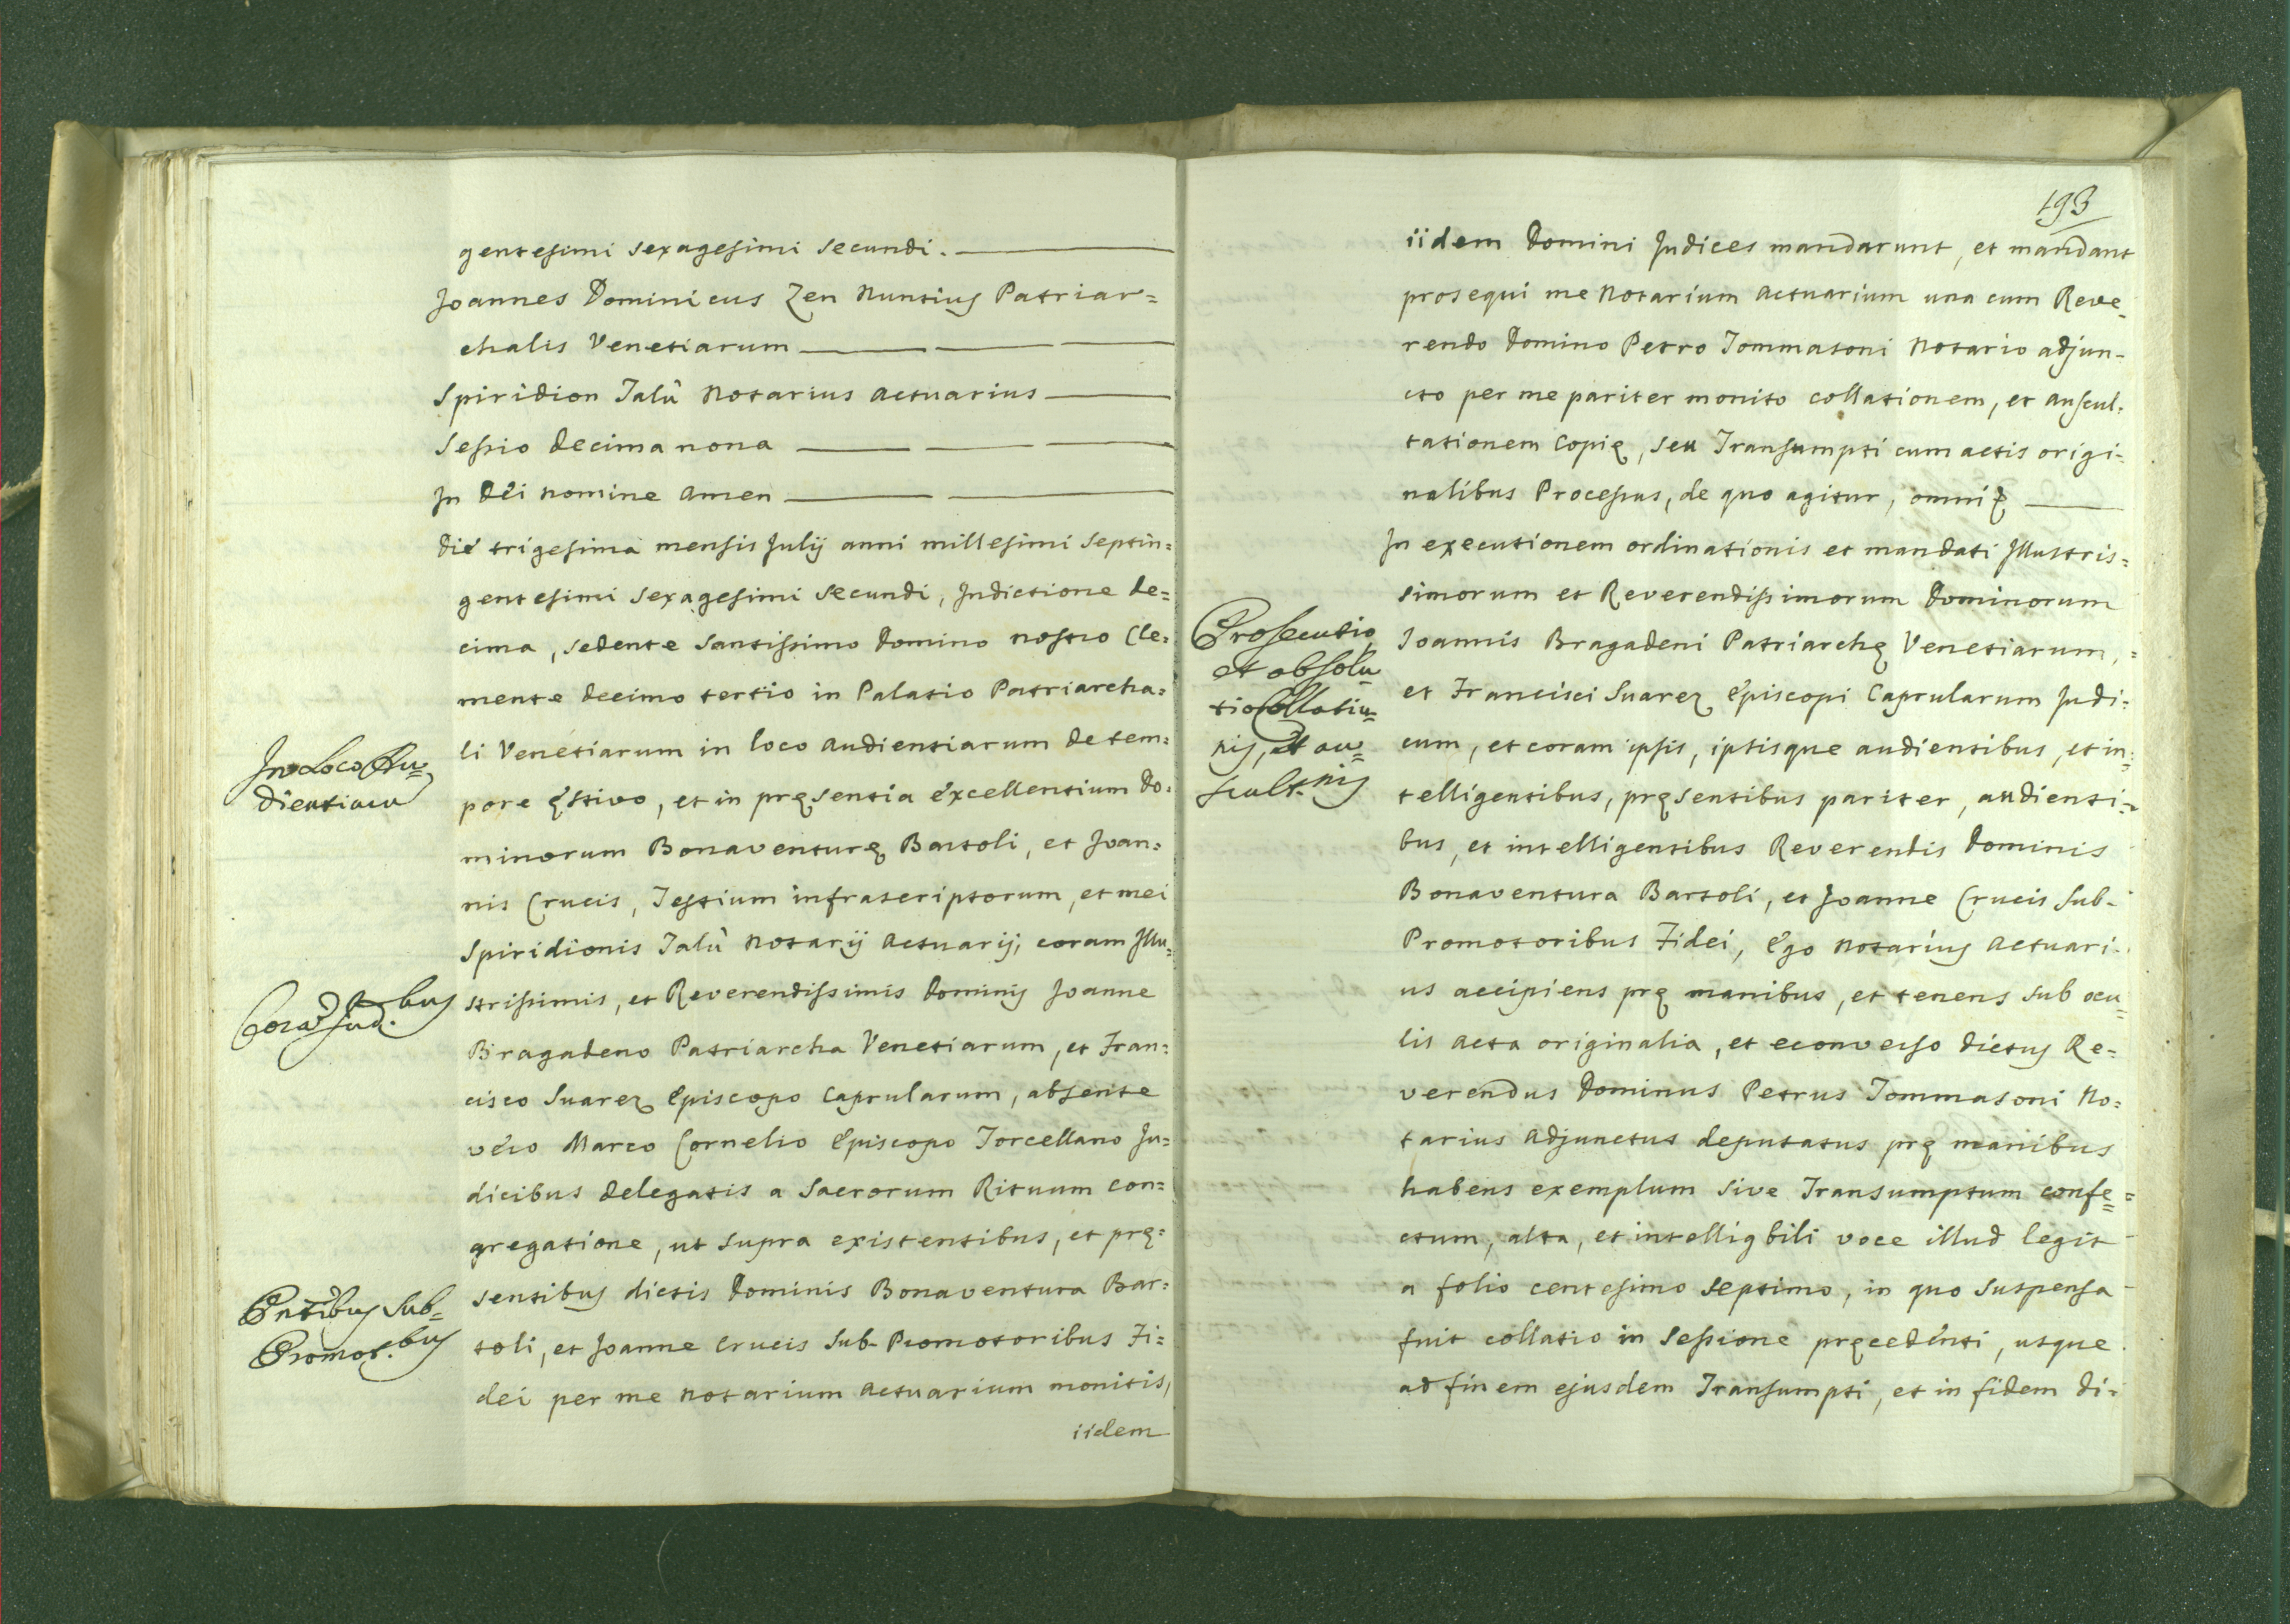 gentesimi sexagesimi secundi.
Joannes Dominicus Zen Nuntius Patriar=
chalis Venetiarum
Spiridion Talù Notarius Actuarius
Sessio decima nona
In Dèi nomine Amen
Die trigesima mensis Julij anni millesimi septin=
gentesimi sexagesimi secundi, Indictione de=
cima, sedente Santissimo Domino nostro Cle=
mente decimo tertio in Palatio Patriarcha=
li Venetiarum in loco Audientiarum de tem=
pore ęstivo, et in pręsentia Excellentium Do=
minorum Bonaventurę Bartoli, et Joan=
nis Crucis, Testium infrascriptorum, et mei
Spiridionis Talù Notarij Actuarij, coram Illu=
strissimis, et Reverendissimis Dominis Joanne
Bragadeno Patriarcha Venetiarum, et Fran=
cisco Suarez Episcopo Caprularum, absente
vèro Marco Cornelio Episcopo Torcellano Ju=
dicibus delegatis a Sacrorum Rituum con=
gregatione, ut supra existentibus, et prę=
sentibus dictis Dominis Bonaventura Bar=
toli, et Joanne Crucis Sub-Promotoribus Fi=
dei per me Notarium Actuarium monitis,
iidem
In Loco Au=
dientiarum
Corã Jud.bus
Pñtibus Sub=
Promot.bus
193
iidem Domini Judices mandarunt, et mandant
prosequi me Notarium Actuarium una cum Reve=
rendo Domino Petro Tommasoni Notario adjun-
cto per me pariter monito collationem, et auscul=
tationem Copię, seu Transumpti cum actis origi=
nalibus Processus, de quo agitur, omni
In executionem ordinationis et mandati Illustris=
simorum et Reverendissimorum Dominorum
Joannis Bragadeni Patriarchę Venetiarum,
et Francisci Suarez Episcopi Caprularum Judi=
cum, et coram ipsis, iptisque audientibus, et in=
telligentibus, pręsentibus pariter, audienti=
bus, et intelligentibus Reverendis Dominis
Bonaventura Bartoli, et Joanne Crucis Sub-
Promotoribus Fidei, Ego Notarius Actuari=
us accipiens prę manibus, et tenens sub ocu=
lis acta originalia, et econverso dictus Re=
verendus Dominus Petrus Tommasoni No=
tarius Adjunctus deputatus prę manibus
habens exemplum sive Transumptum confe=
ctum, alta, et intelligbili voce illud legit
a folio centesimo septimo, in quo suspensa
fuit collatio in Sessione pręcedènti, usque
ad finem ejusdem Transumpti, et in fidem di=
Prosecutio,
et absolu
tio Collatio=
nis, et au=
scult.nis